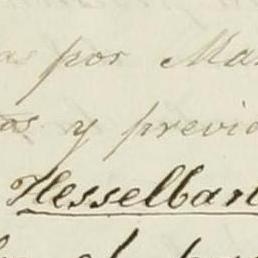 as por Ma
os y previo
Hesselbar